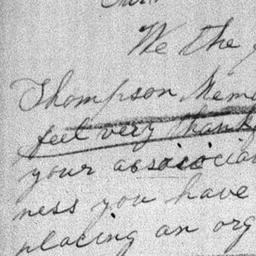 We the
Thompson Mem
feel very thank
your absociciat
ness you have
placing an org